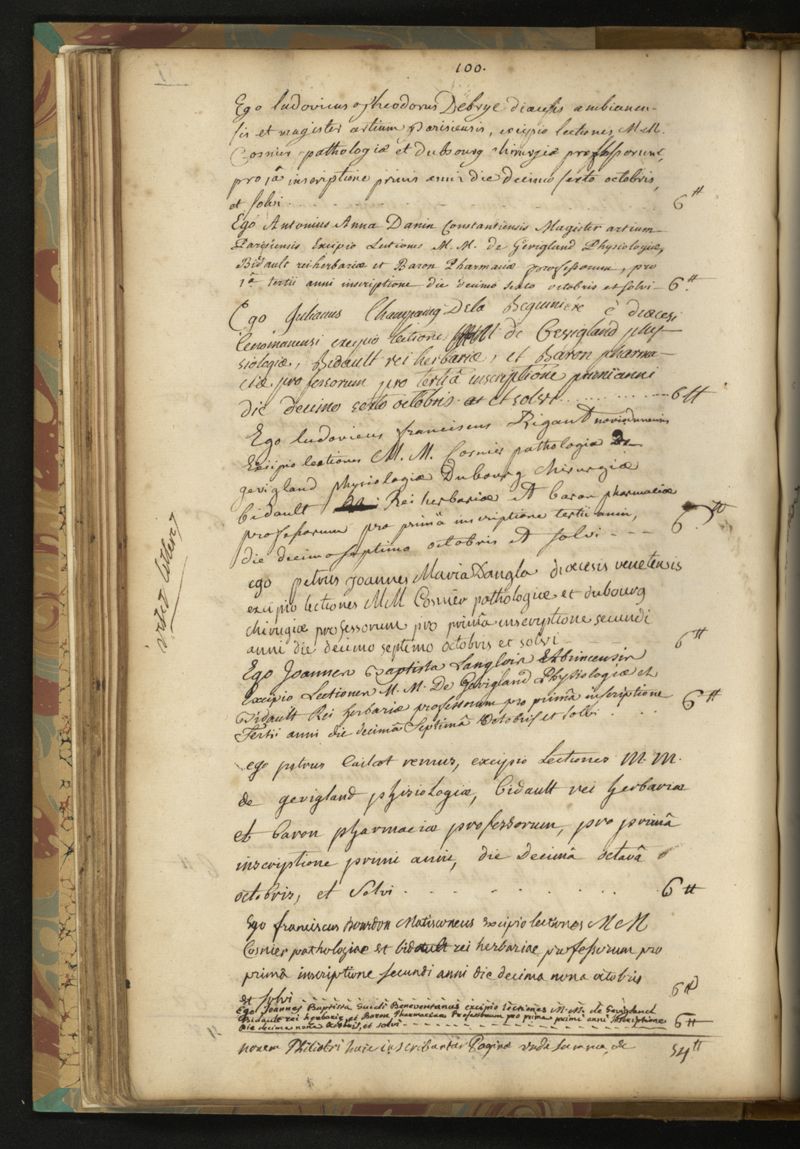 100.
Ego Ludovicus Theodorus Debrye diœcesis ambianen-
sis et magister artium parisiensis, excipio lectiones M.M.
Cosnier pathologiæ et dubourg chirurgiæ professorum,
pro 1â inscriptione primi anni die decimo sexto octobris,
et solvi 6 ₶
Ego Antonius Anna Danin Constantiensis Magister artium
Parisiensis Excipio Lectiones M.M. de Gevigland Physiologiæ,
Bidault rei herbariæ et Baron Pharmaciæ professorum, pro
1â tertii anni inscriptione die decimo sexto octobris et solvi 6 ₶
Ego Julianus De la è diœcesi
Cenomanensi excipio lectiones de Gevigland phy-
siologiæ, Bidault rei herbariæ, et Baron pharma-
ciæ professorum pro tertiâ inscriptione primi anni
die decimo sexto octobris et solvi 6 ₶
Ego Ludovicus franciscus Rigaut
Excipio lectiones M.M. Cosnier pathologiæ De
gevigland physiologiæ Dubourg chirurgiæ
bidault Rei herbariæ et baron pharmaciæ
professorum pro primâ inscriptione tertii anni,
die decimo septimo octobris et solvi 6 ₶
ego petrus joannes Maria Dangla diœcesis venetensis
excipio lectiones MM Cosnier pathologiæ et dubourg
chirugiæ professorum pro primâ inscriptione secundi
anni die decimo septimo octobris et solvi 6 ₶
Ego Joannes Baptista Langlois Abrincensis
Excipio Lectiones M.M. De Gevigland Physiologiæ et
Bidault Rei herbariæ professorum pro primâ inscriptione
Tertii anni die decimâ Septimâ Octobris et solvi 6 ₶
ego petrus remus, excipio Lectiones M.M.
de gevigland phisiologiæ, bidault rei herbariæ
et baron pharmaciæ professorum, pro primâ
inscriptione primi anni, die Decimâ octavâ
octobris, et solvi 6 ₶
Ego franciscus Bourdon Matisconeus Excipio lectiones M M
Cosnier pathologiae et bidault rei herbariae professorum pro
primâ inscriptione secundi anni die decima nona octobris
et solvi 6 ₶
Ego Joannes Baptista Guidi Beneventanus excipio lectiones M.M. de Gevigland
Bidault rei herbariæ et Baron Pharmaciæ Professorum pro prima primi anni inscriptione
die decima nona octobris, et solvi 6 ₶
novem Philiatri huic inscribuntur Paginæ unde summa, de 54 ₶